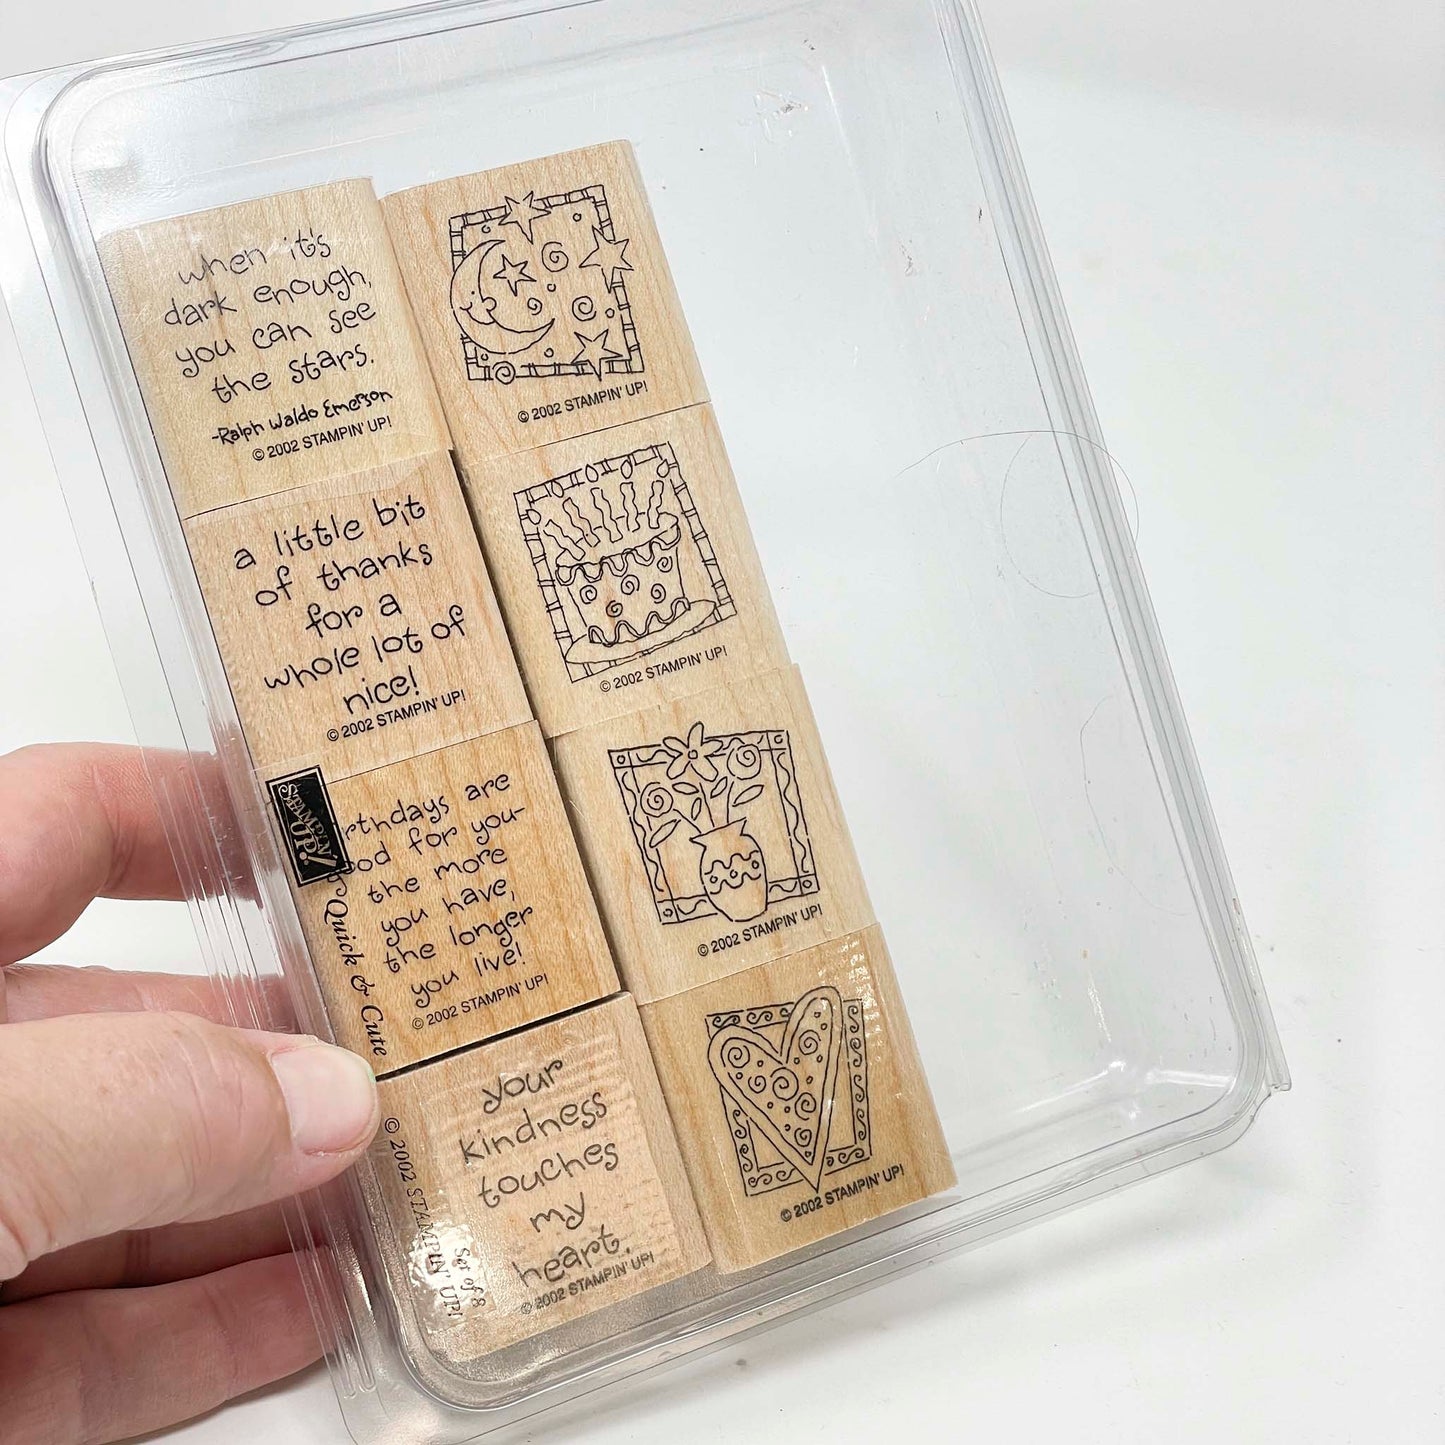 when it's
dark enough,
you can see
the stars.
-Ralph Waldo Emerson
© 2002 STAMPIN' UP!
© 2002 STAMPIN' UP!
a little bit
of thanks
for a
whole lot of
nice!
© 2002 STAMPIN' UP!
© 2002 STAMPIN' UP!
STAMPIN'
UP!
rthdays are
ood for you-
the more
you have,
the longer
you live!
© 2002 STAMPIN' UP!
© 2002 STAMPIN' UP!
Quick & Cute
your
kindness
touches
my
heart.
© 2002 STAMPIN' UP!
© 2002 STAMPIN' UP!
© 2002 STAMPIN' UP!
Set of 8